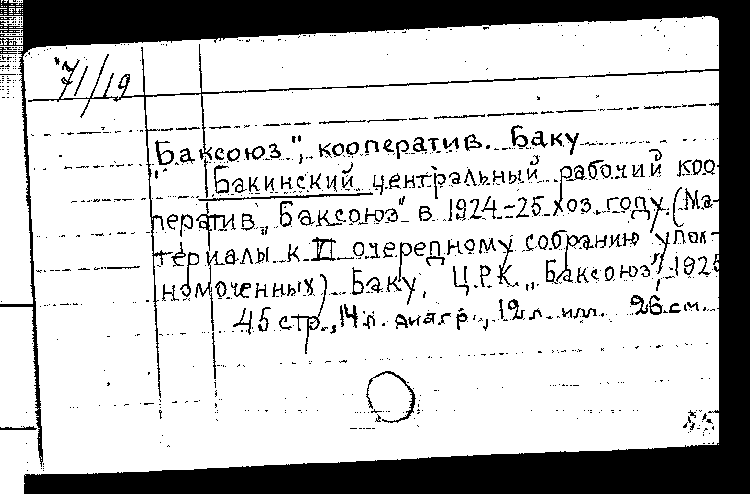 71/19
"Баксоюз", кооператив. Баку
Бакинский центральный рабочий коо-
ператив „Баксоюз" в 1924-25 хоз. году. (Ма-
териалы к VI очередному собранию упол-
номоченных). Баку, Ц.Р.К. „Баксоюз", 1925
45 стр., 14 л. диагр., 12 л. илл. 26 см.